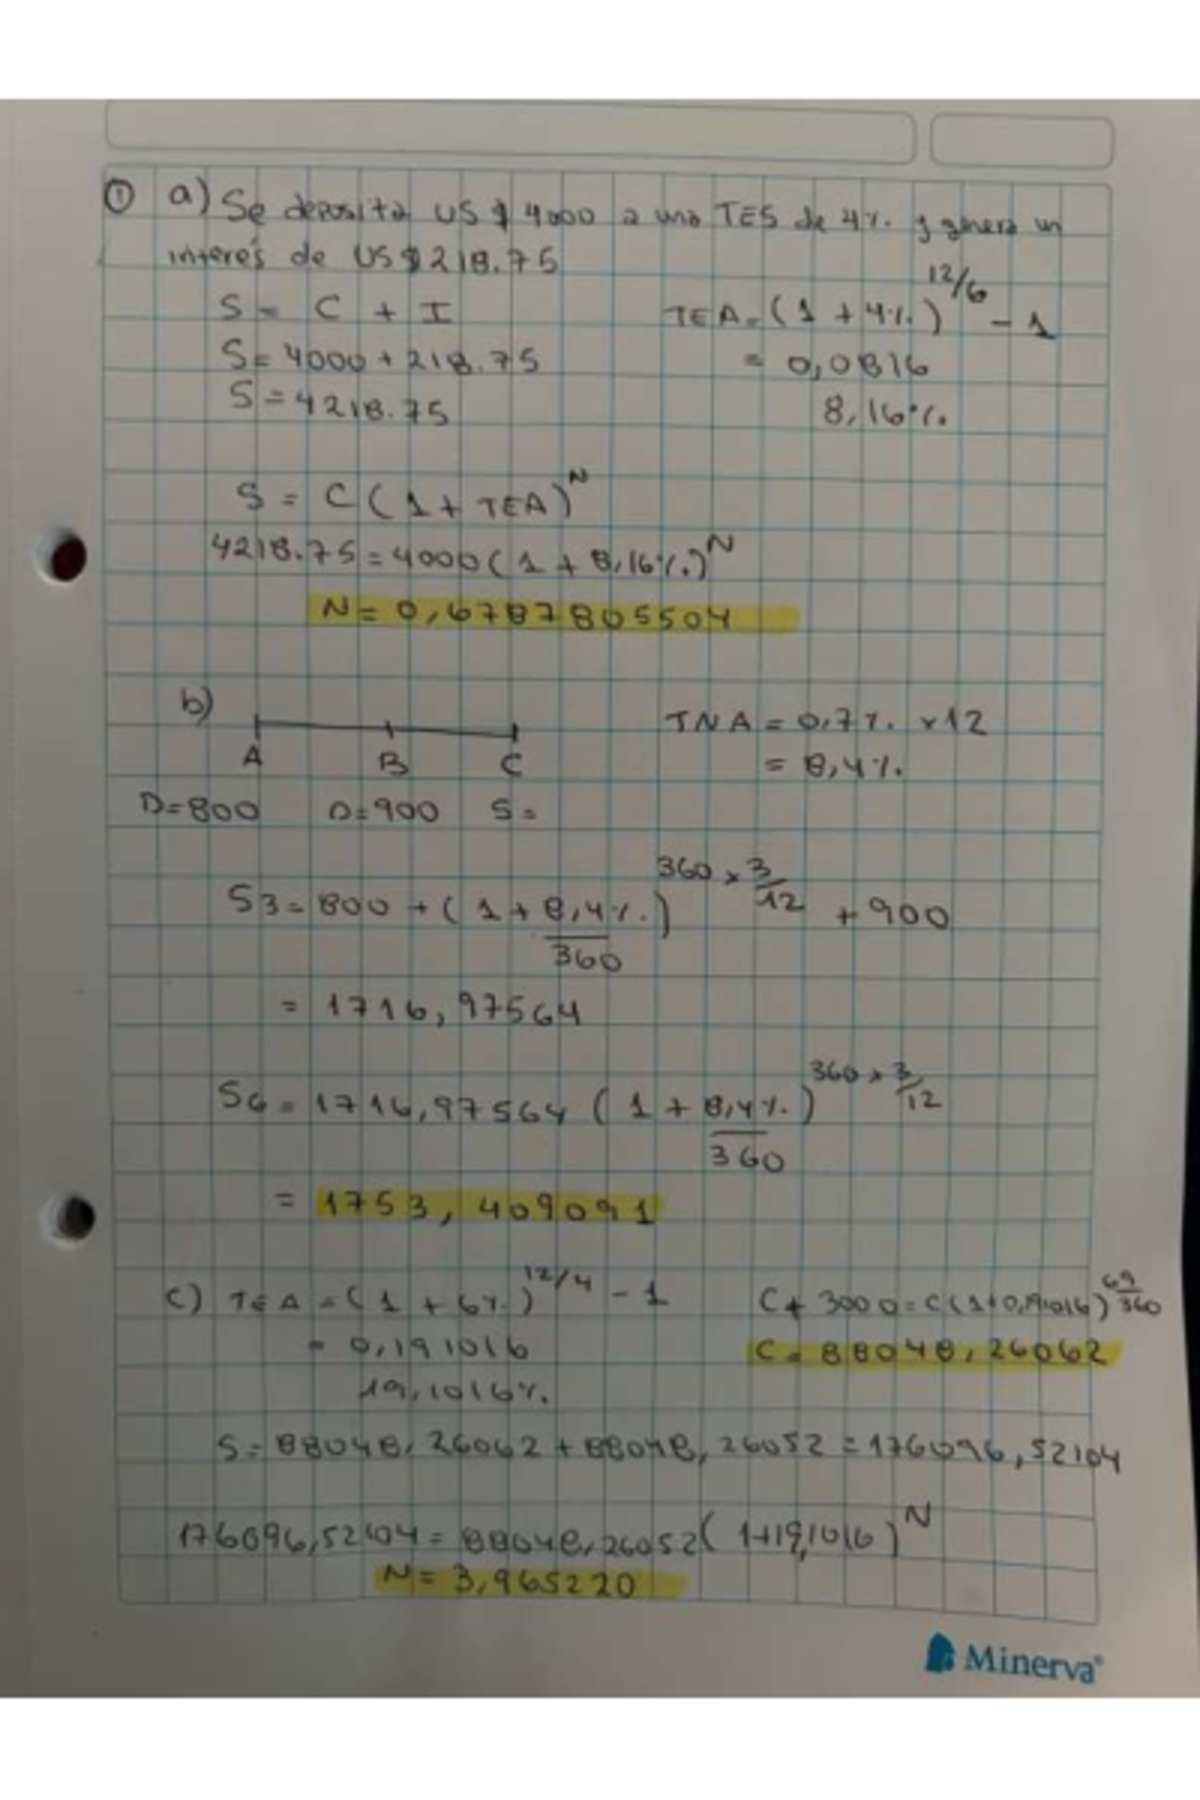 ① a) Se deposita US $ 4000 a una TES de 4%. y genera un
interés de US $ 218.75
S = C + I
S = 4000 + 218.75
S = 4218.75
TEA = (1 + 4%.)^12/6 - 1
= 0,0816
8,16%.
S = C (1 + TEA)^N
4218.75 = 4000 (1 + 8,16%.)^N
N = 0,6787805504
b)
A B C
D=800 D=900 S=
TNA = 0,7%. x 12
= 8,4%.
S3 = 800 + (1 + 8,4%./360)^360 x 3/12 + 900
= 1716,97564
S6 = 1716,97564 (1 + 8,4%./360)^360 x 3/12
= 1753,409091
c) TEA = (1 + 6%.)^12/4 - 1
= 0,191016
19,1016%.
C + 3000 = C (1+0,191016)^69/360
C = 88048,26062
S = 88048,26062 + 88048,26052 = 176096,52104
176096,52104 = 88048,26052 (1+19,1016)^N
N = 3,965220
Minerva®